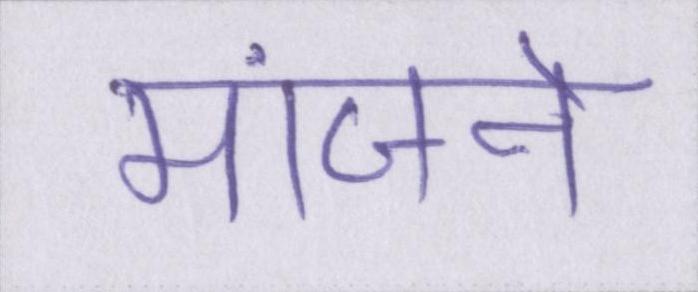 मांजने